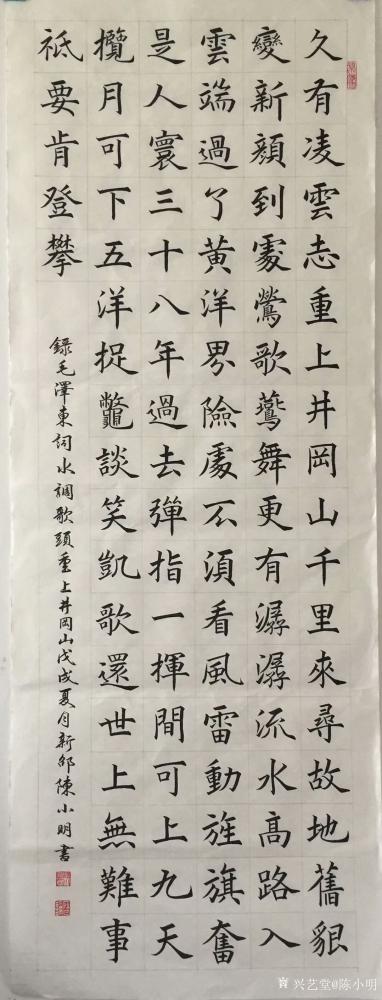 久有凌雲志重上井岡山千里來尋故地舊貌
變新顏到處鶯歌鷰舞更有潺潺流水高路入
雲端過了黃洋界險處不須看風雷動旌旗奮
是人寰三十八年過去彈指一揮間可上九天
攬月可下五洋捉鼈談笑凱歌還世上無難事
祗要肯登攀
録毛澤東詞水調歌頭重上井岡山戊戌夏月新邵陳小明書
兴艺堂@陈小明